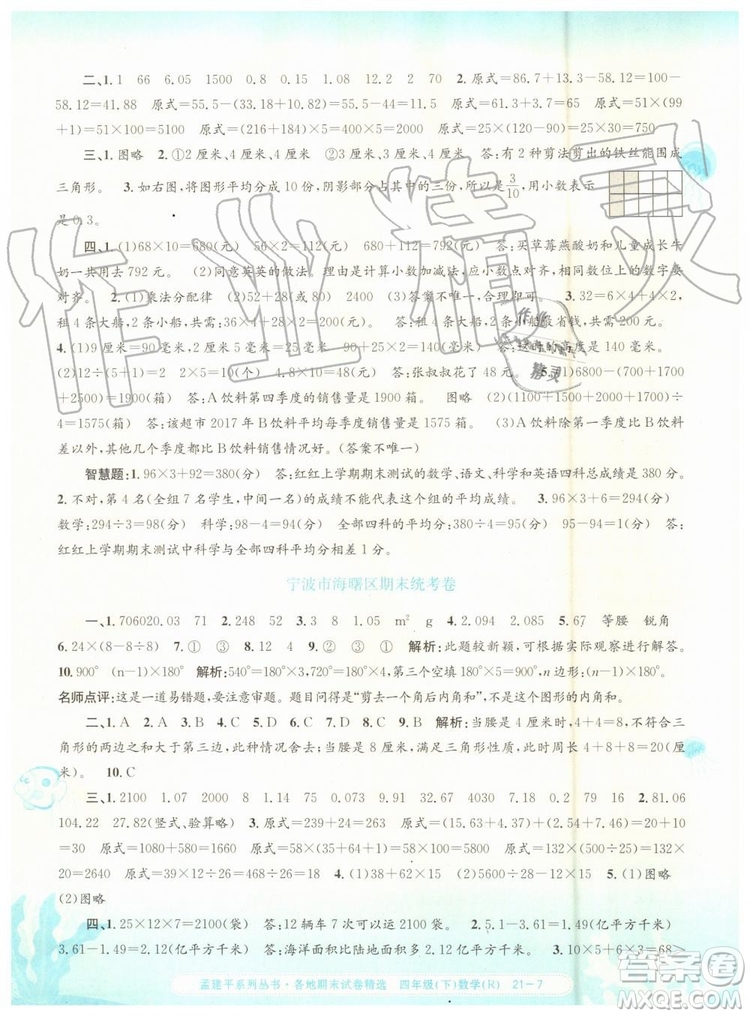 二、1. 1 66 6.05 1500 0.8 40 4 2 2 70 2. 原式=86.7+13.3-(30-10)=80 原式=100-
58.12=41.88 原式=76-(33.18+10.82)=32 原式=61.3+3.7=65 原式=51×(99
+1)=51×100=5100 原式=9600÷(216-184)=300 原式=25×(120-90)=25×30=750
三、1. 图略 2. ①2厘米,4厘米,4厘米 ②3厘米,3厘米,4厘米 答:有2种剪法剪出的铁丝能围成
三角形。 3. 如右图,将图形平均分成10份,阴影部分是其中的3份,所以是3/10,用小数表示
是0.3。
四、1. (1)68×10=680(元) 56×2=112(元) 680+112=792(元) 答:买草莓燕酸奶和儿童成长牛
奶一共用去792元。 (2)同意英英的做法 理由是计算小数加减法,应小数点对齐,相同数位上的数字要
对齐。 2. (1)乘法分配律 (2)52 28 (52+28)×30 80 2400 (3)答案不唯一,合理即可。
租4条大船,2条小船,共需:
4. (1)9厘米=90毫米
(2)12÷(10÷4)=4.8(元) 4.8×10=48(元) 答:张叔叔花了48元。 5. (1)6800-(1700+1500
+2500)=1900(箱) 答:A饮料第四季度的销售量是1900箱。 图略
4=1575(箱) 答:该超市2017年B饮料平均每季度销售量是1575箱。 (3)A饮料除第一季度比B饮料
差以外,其他三个季度都比B饮料销售情况好。(答案不唯一)
智慧题:1. 96×3+92=380(分) 答:红红上学期期末测试的数学、语文、科学和英语四科总成绩是380分。
2. 不对,第4名(全组7名学生,中间一名)的成绩不能代表这个组的平均成绩。 3. 96×3+6=294(分)
数学:294÷3=98(分) 科学:98-4=94(分) 全部四科的平均分:380÷4=95(分) 95-94=1(分) 答:
红红上学期期末测试中科学与全部四科平均分相差1分。
宁波市海曙区期末统考卷
一、1. 706020.03 35 71 2. 0.249 0.25 3. 0.61 1.05 m² g 4. 2.094 2.085 5. 67 等腰 锐角
6. 24×(8-8÷8) 7. ① ③ 8. ① ② 9. ④ ③ 12 11 解析:此题比较新颖,可根据实际观察进行解答。
10. 900° (n-1)×180° 解析:540°=3×180°,720°=4×180°,第三个空填180°×5=900°,n边形:(n-1)×180°。
名师点评:这是一道易错题,要注意审题。题目问得是“剪去一个角后内角和”,而不是这个图形的内角和。
二、1. A 2. A 3. D 4. C 5. D 6. B 7. C 8. C 9. B 解析:当腰是4厘米时,4+4=8,不符合三
角形的两边之和大于第三边,此种情况舍去;当腰是8厘米,8+8>4,所以三角形的周长为8+8+4=20(厘
米)。 10. C
三、1. 2100 1.05 10.08 0.07 250 1 13 27 8.4 0.2 79 16 2. 81.06
104.22 27.82(竖式、验算略) 3. 原式=400-137=263 原式=125×8×0.12=120 原式=10×12÷4
=30 原式=1080+580=1660 原式=163×(10+1-1)=1630 原式=132×(7×3-1)=132×
20=2640 原式=(33+67)×106=10600 原式=1200÷120=10 4. (1)(6,8) 5. (1)图略
(2)图略
四、1. 25×12×7=2100(袋) 答:12辆车7天可以运2100袋。 2. 5.1-3.61=1.49(亿平方千米)
3.61-1.49=2.12(亿平方千米) 答:海洋面积比陆地面积多2.12亿平方千米。 3. 10×5+3×6=68>
孟建平系列丛书·各地期末试卷精选 四年级(下)数学(R) 21-7
作业精灵
作业
精灵
答案圈
MXQE.COM